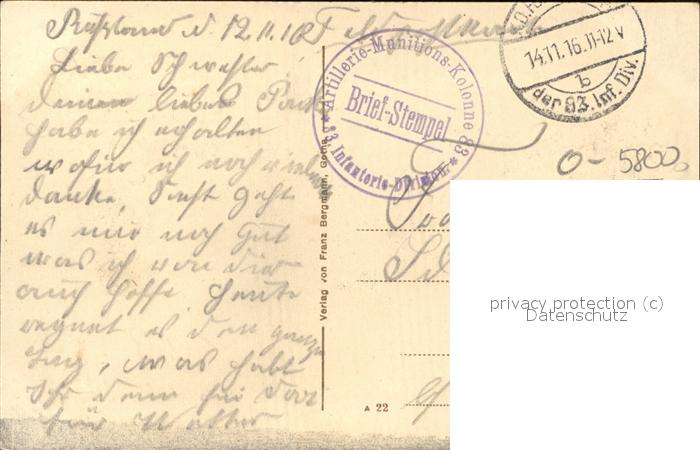 Rußland d. 12.11.16 Feldpostkarte
Liebe Schwester
deinen liebes Pack
habe ich erhalten
wofür ich noch vielmals
danke, Sonst geht
es mir noch gut
was ich von dir
auch hoffe. Heute
regnet es den ganzen
Tag, was habt
Ihr denn für das
für Wetter
Artillerie-Munitions-Kolonne 83
Brief-Stempel
83. Infanterie-Division.
14.11.16.11-12V
b
der 83. Inf. Div.
O-5800
Verlag von Franz Bergmann, Gotha.
A 22
privacy protection (c)
Datenschutz